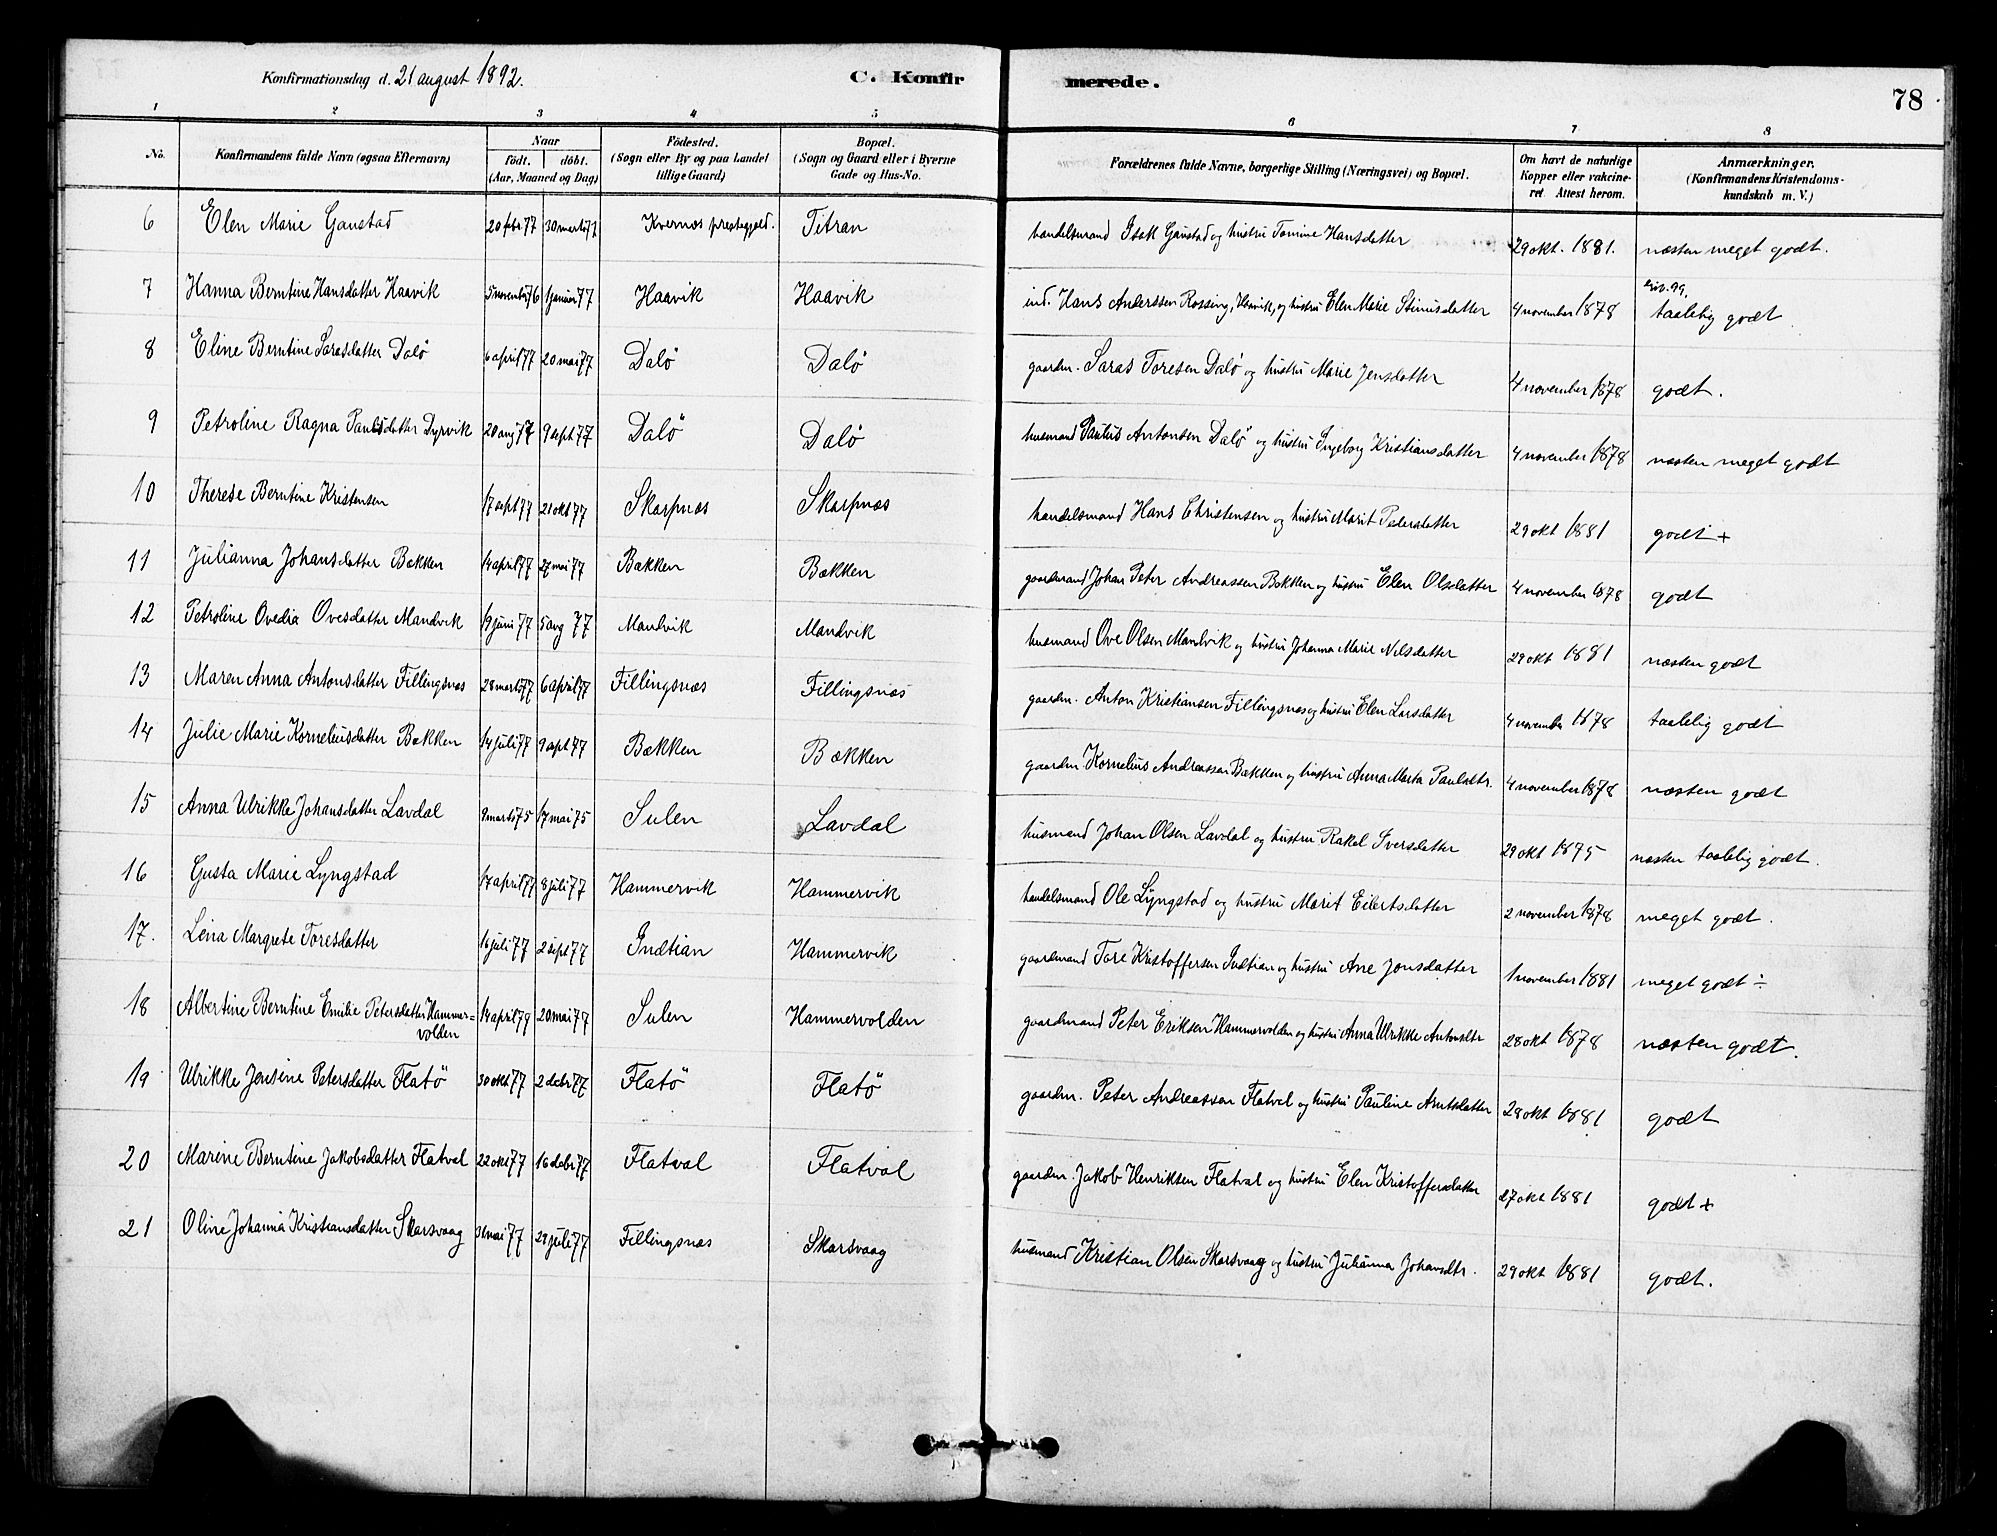 Konfirmationsdag d. 21 august 1892.
C. Konfirmerede.
78
1 2 3 4 5 6 7 8
No. Konfirmandens fulde Navn (ogsaa Efternavn) Naar födt. döbt. (Aar, Maaned og Dag) Födested. (Sogn eller By og paa Landet tillige Gaard) Bopæl. (Sogn og Gaard eller i Byerne Gade og Hus-No. Forældrenes fulde Navne, borgerlige Stilling (Næringsvei) og Bopæl. Om havt de naturlige Kopper eller vakcineret Attest herom. Anmærkninger. (Konfirmandens Kristendomskundskab m. V.)
6 Elen Marie Gaustad 20 febr 77 30 marts 77 Kvernes prestegjeld. Titran handelsmand Isak Gaustad og hustru Tomine Hansdatter 29 okt. 1881. næsten meget godt.
7 Hanna Berntine Hansdatter Haavik 5 novembr 76 1 januar 77 Haavik Haavik ind. Hans Anderssen Rossing, Haavik, og hustru Elen Marie Stinusdatter 4 november 1878 taalelig godt
8 Eline Berntine Sarasdatter Dalö 6 april 77 20 mai 77 Dalö Dalö gaardm. Saras Toresen Dalö og hustru Marie Jensdatter 4 november 1878 godt.
9 Petroline Ragna Paulsdatter Dyrvik 20 aug 77 9 sept 77 Dalö Dalö husmand Paulus Antonsen Dalö og hustru Ingeborg Kristiansdatter 4 november 1878 næsten meget godt
10 Therese Berntine Kristensen 17 sept 77 21 okt 77 Skarpnæs Skarpnæs handelsmand Hans Christensen og hustru Marit Pedersdatter 29 okt 1881 godt +
11 Julianna Johansdatter Bækken 14 april 77 27 mai 77 Bækken Bækken gaardmand Johan Peter Andreassen Bækken og hustru Elen Olsdatter 4 november 1878 godt
12 Petroline Ovedia Ovesdatter Mandvik 19 juni 77 5 aug 77 Mandvik Mandvik husmand Ove Olsen Mandvik og hustru Johanna Marie Nilsdatter 29 okt 1881 næsten godt
13 Maren Anna Antonsdatter Fillingsnæs 28 marts 77 6 april 77 Fillingsnæs Fillingsnæs gaardm. Anton Kristiansen Fillingsnæs og hustru Elen Larsdatter 4 november 1878 taalelig godt
14 Julie Marie Korneliusdatter Bækken 14 juli 77 9 sept 77 Bækken Bækken gaardm. Kornelius Andreassen Bækken og hustru Anna Marta Paulsdtr. 4 november 1878 næsten godt
15 Anna Ulrikke Johansdatter Lavdal 9 marts 75 17 mai 75 Sulen Lavdal husmand Johan Olsen Lavdal og hustru Rakel Iversdatter 29 okt 1875 næsten taalelig godt.
16 Gusta Marie Lyngstad 17 april 77 8 juli 77 Hammervik Hammervik handelsmand Ole Lyngstad og hustru Marit Eilertsdatter 2 november 1878 meget godt.
17. Lena Margrete Toresdatter 16 juli 77 2 sept 77 Indtian Hammervik gaardmand Tore Kristoffersen Indtian og hustru Ane Jonsdatter 1 november 1881 meget godt ÷
18 Albertine Berntine Emilie Petersdatter Hammervolden 14 april 77 20 mai 77 Sulen Hammervolden gaardmand Peter Eriksen Hammervolden og hustru Anna Ulrikke Antonsdtr 28 okt 1878 næsten godt.
19 Ulrikke Jensine Petersdatter Flatö 30 okt 77 2 debr 77 Flatö Flatö gaardm. Peter Andreassen Flatval og hustru Pauline Arntsdatter 28 okt 1881 godt
20 Marine Berntine Jakobsdatter Flatval 22 okt 77 16 debr 77 Flatval Flatval gaardm. Jakob Henriksen Flatval og hustru Elen Kristoffersdatter 27 okt 1881 godt +
21 Oline Johanna Kristiansdatter Skarsvaag 31 mai 77 29 juli 77 Fillingsnæs Skarsvaag husmand Kristian Olsen Skarsvaag og hustru Julianna Johansdtr. 29 okt 1881 godt.